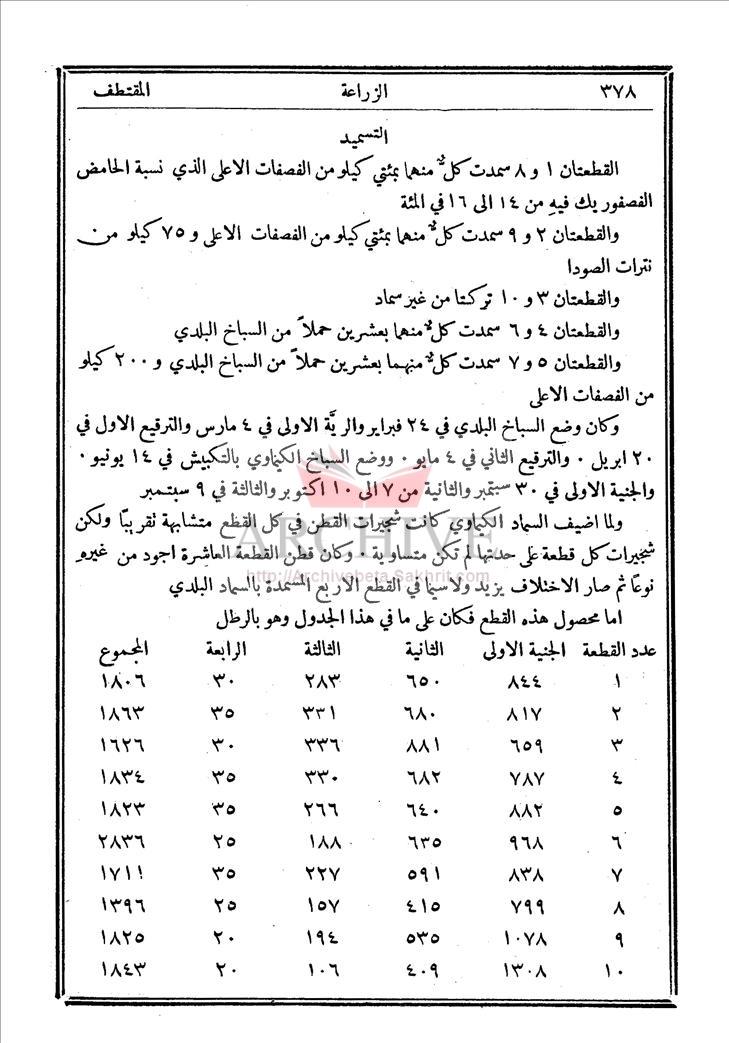 ٣٧٨ الزراعة المقتطف
التسميد
القطعتان ١ و ٨ سمدت كلٌّ منهما بمئتي كيلو من الفصفات الاعلى الذي نسبة الحامض
الفصفوريك فيهِ من ١٤ الى ١٦ في المئة
والقطعتان ٢ و ٩ سمدت كلٌّ منهما بمئتي كيلو من الفصفات الاعلى و ٧٥ كيلو من
نترات الصودا
والقطعتان ٣ و ١٠ تركتا من غير سماد
والقطعتان ٤ و ٦ سمدت كلٌّ منهما بعشرين حملاً من السباخ البلدي
والقطعتان ٥ و ٧ سمدت كلٌّ منهما بعشرين حملاً من السباخ البلدي و ٢٠٠ كيلو
من الفصفات الاعلى
وكان وضع السباخ البلدي في ٢٤ فبراير والريَّة الاولى في ٤ مارس والترقيع الاول في
٢٠ ابريل ٠ والترقيع الثاني في ٤ مايو ٠ ووضع السباخ الكيماوي بالتكبيش في ١٤ يونيو ٠
والجنية الاولى في ٣٠ سبتمبر والثانية من ٧ الى ١٠ اكتوبر والثالثة في ٩ سبتمبر
ولما اضيف السماد الكيماوي كانت شجيرات القطن في كل القطع متشابهة تقريبًا ولكن
شجيرات كل قطعة على حدتها لم تكن متساوية ٠ وكان قطن القطعة العاشرة اجود من غيرهِ
نوعًا ثم صار الاختلاف يزيد ولاسيما في القطع الاربع المسمدة بالسماد البلدي
اما محصول هذه القطع فكان على ما في هذا الجدول وهو بالرطل
عدد القطعة الجنية الاولى الثانية الثالثة الرابعة المجموع
١ ٨٤٤ ٦٥٠ ٢٨٣ ٣٠ ١٨٠٦
٢ ٨١٧ ٦٨٠ ٣٣١ ٣٥ ١٨٦٣
٣ ٦٥٩ ٨٨١ ٣٣٦ ٣٠ ١٦٢٦
٤ ٧٨٧ ٦٨٢ ٣٣٠ ٣٥ ١٨٣٤
٥ ٨٨٢ ٦٤٠ ٢٦٦ ٣٥ ١٨٢٣
٦ ٩٦٨ ٦٣٥ ١٨٨ ٢٥ ٢٨٣٦
٧ ٨٣٨ ٥٩١ ٢٢٧ ٣٥ ١٧١١
٨ ٧٩٩ ٤١٥ ١٥٧ ٢٥ ١٣٩٦
٩ ١٠٧٨ ٥٣٥ ١٩٤ ٢٠ ١٨٢٥
١٠ ١٣٠٨ ٤٠٩ ١٠٦ ٢٠ ١٨٤٣
ARCHIVE
http://Archivebeta.Sakhrit.com